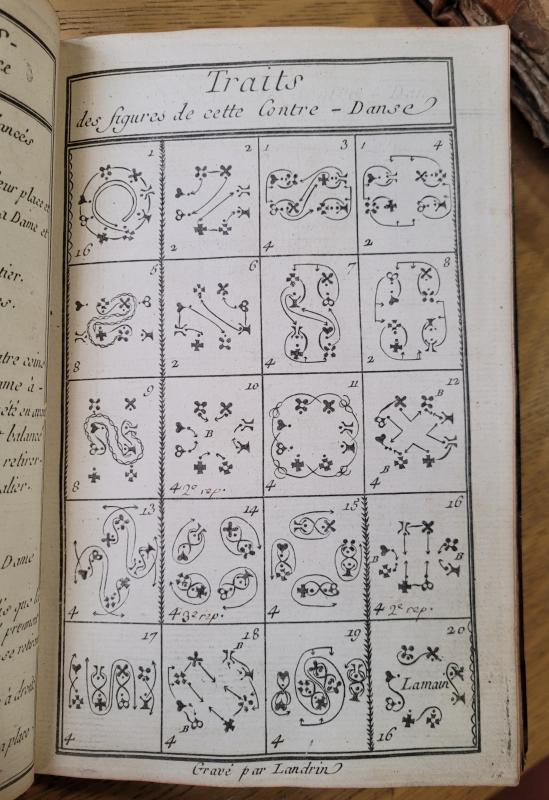 ce
lancés
leur place et
a Dame et
tier.
Traits
des figures de cette Contre - Danse
1 2 1 3 1 4
16 2 4 2
5 6 7 8
8 2 4 2
9 10 11 12
B B
B
8 4 2e rep. 4 4
13 14 15 16
B
B
4 4 3e rep. 4 4 2e rep.
17 18 19 20
B
Lamain
B
4 4 4 16
Gravé par Landrin
ntre coine
ame à -
été en avant
t balancé
retirer-
alier.
Dame
à droits
place